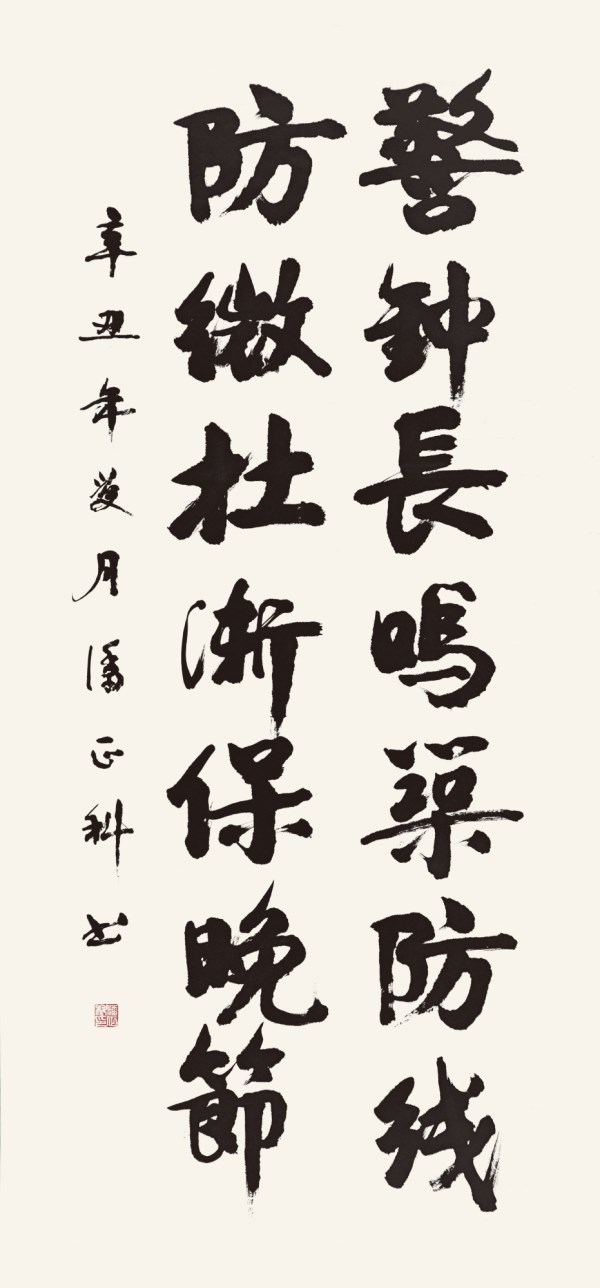 警钟長鸣築防线
防微杜渐保晚節
辛丑年夏月潘正科书